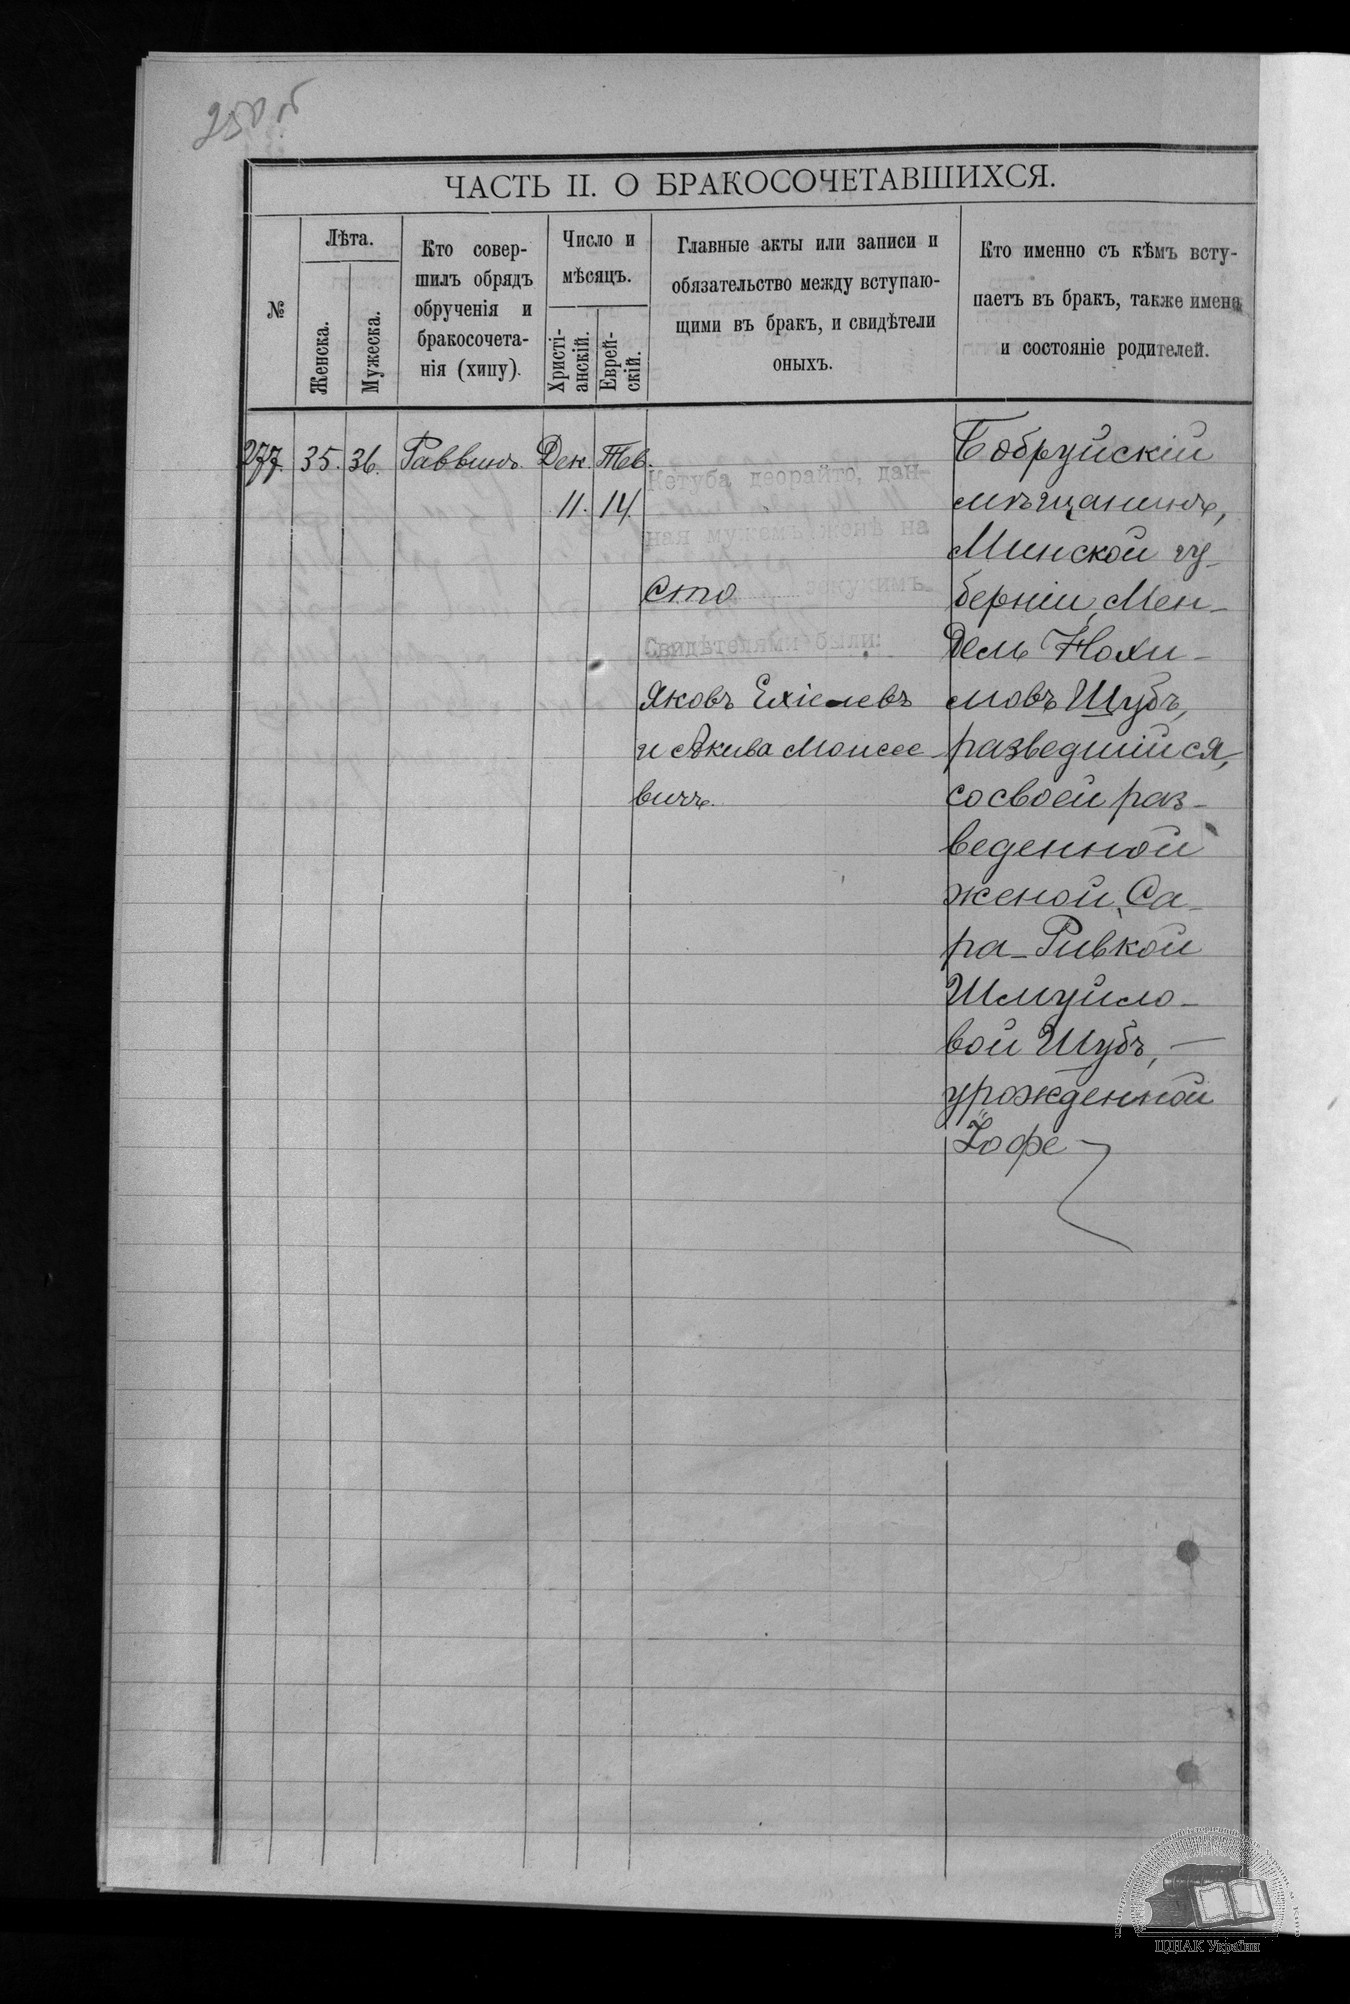 250 об
ЧАСТЬ II. О БРАКОСОЧЕТАВШИХСЯ.
№
Лѣта.
Женска.
Мужеска.
Кто совер-
шилъ обрядъ
обрученія и
бракосочета-
нія (хипу).
Число и
мѣсяцъ.
Христі-
анскій.
Еврей-
скій.
Главные акты или записи и
обязательство между вступаю-
щими въ бракъ, и свидѣтели
оныхъ.
Кто именно съ кѣмъ всту-
паетъ въ бракъ, также имена
и состояніе родителей.
277. 35. 36. Раввинъ. Дек. Тев.
11. 14.
Кетуба деорайто, дан-
ная мужемъ женѣ на
сто зекукимъ.
Свидѣтелями были:
Яковъ Ехіелевъ
и Акива Моисее-
вичъ.
Бобруйскій
мѣщанинъ,
Минской гу-
берніи, Мен-
дель Нохи-
мовъ Шубъ,
разведшійся,
со своей раз-
веденной
женой, Са-
ра-Ривкой
Шмуйло-
вой Шубъ, —
урожденной
Іофе
ЦДІАК України